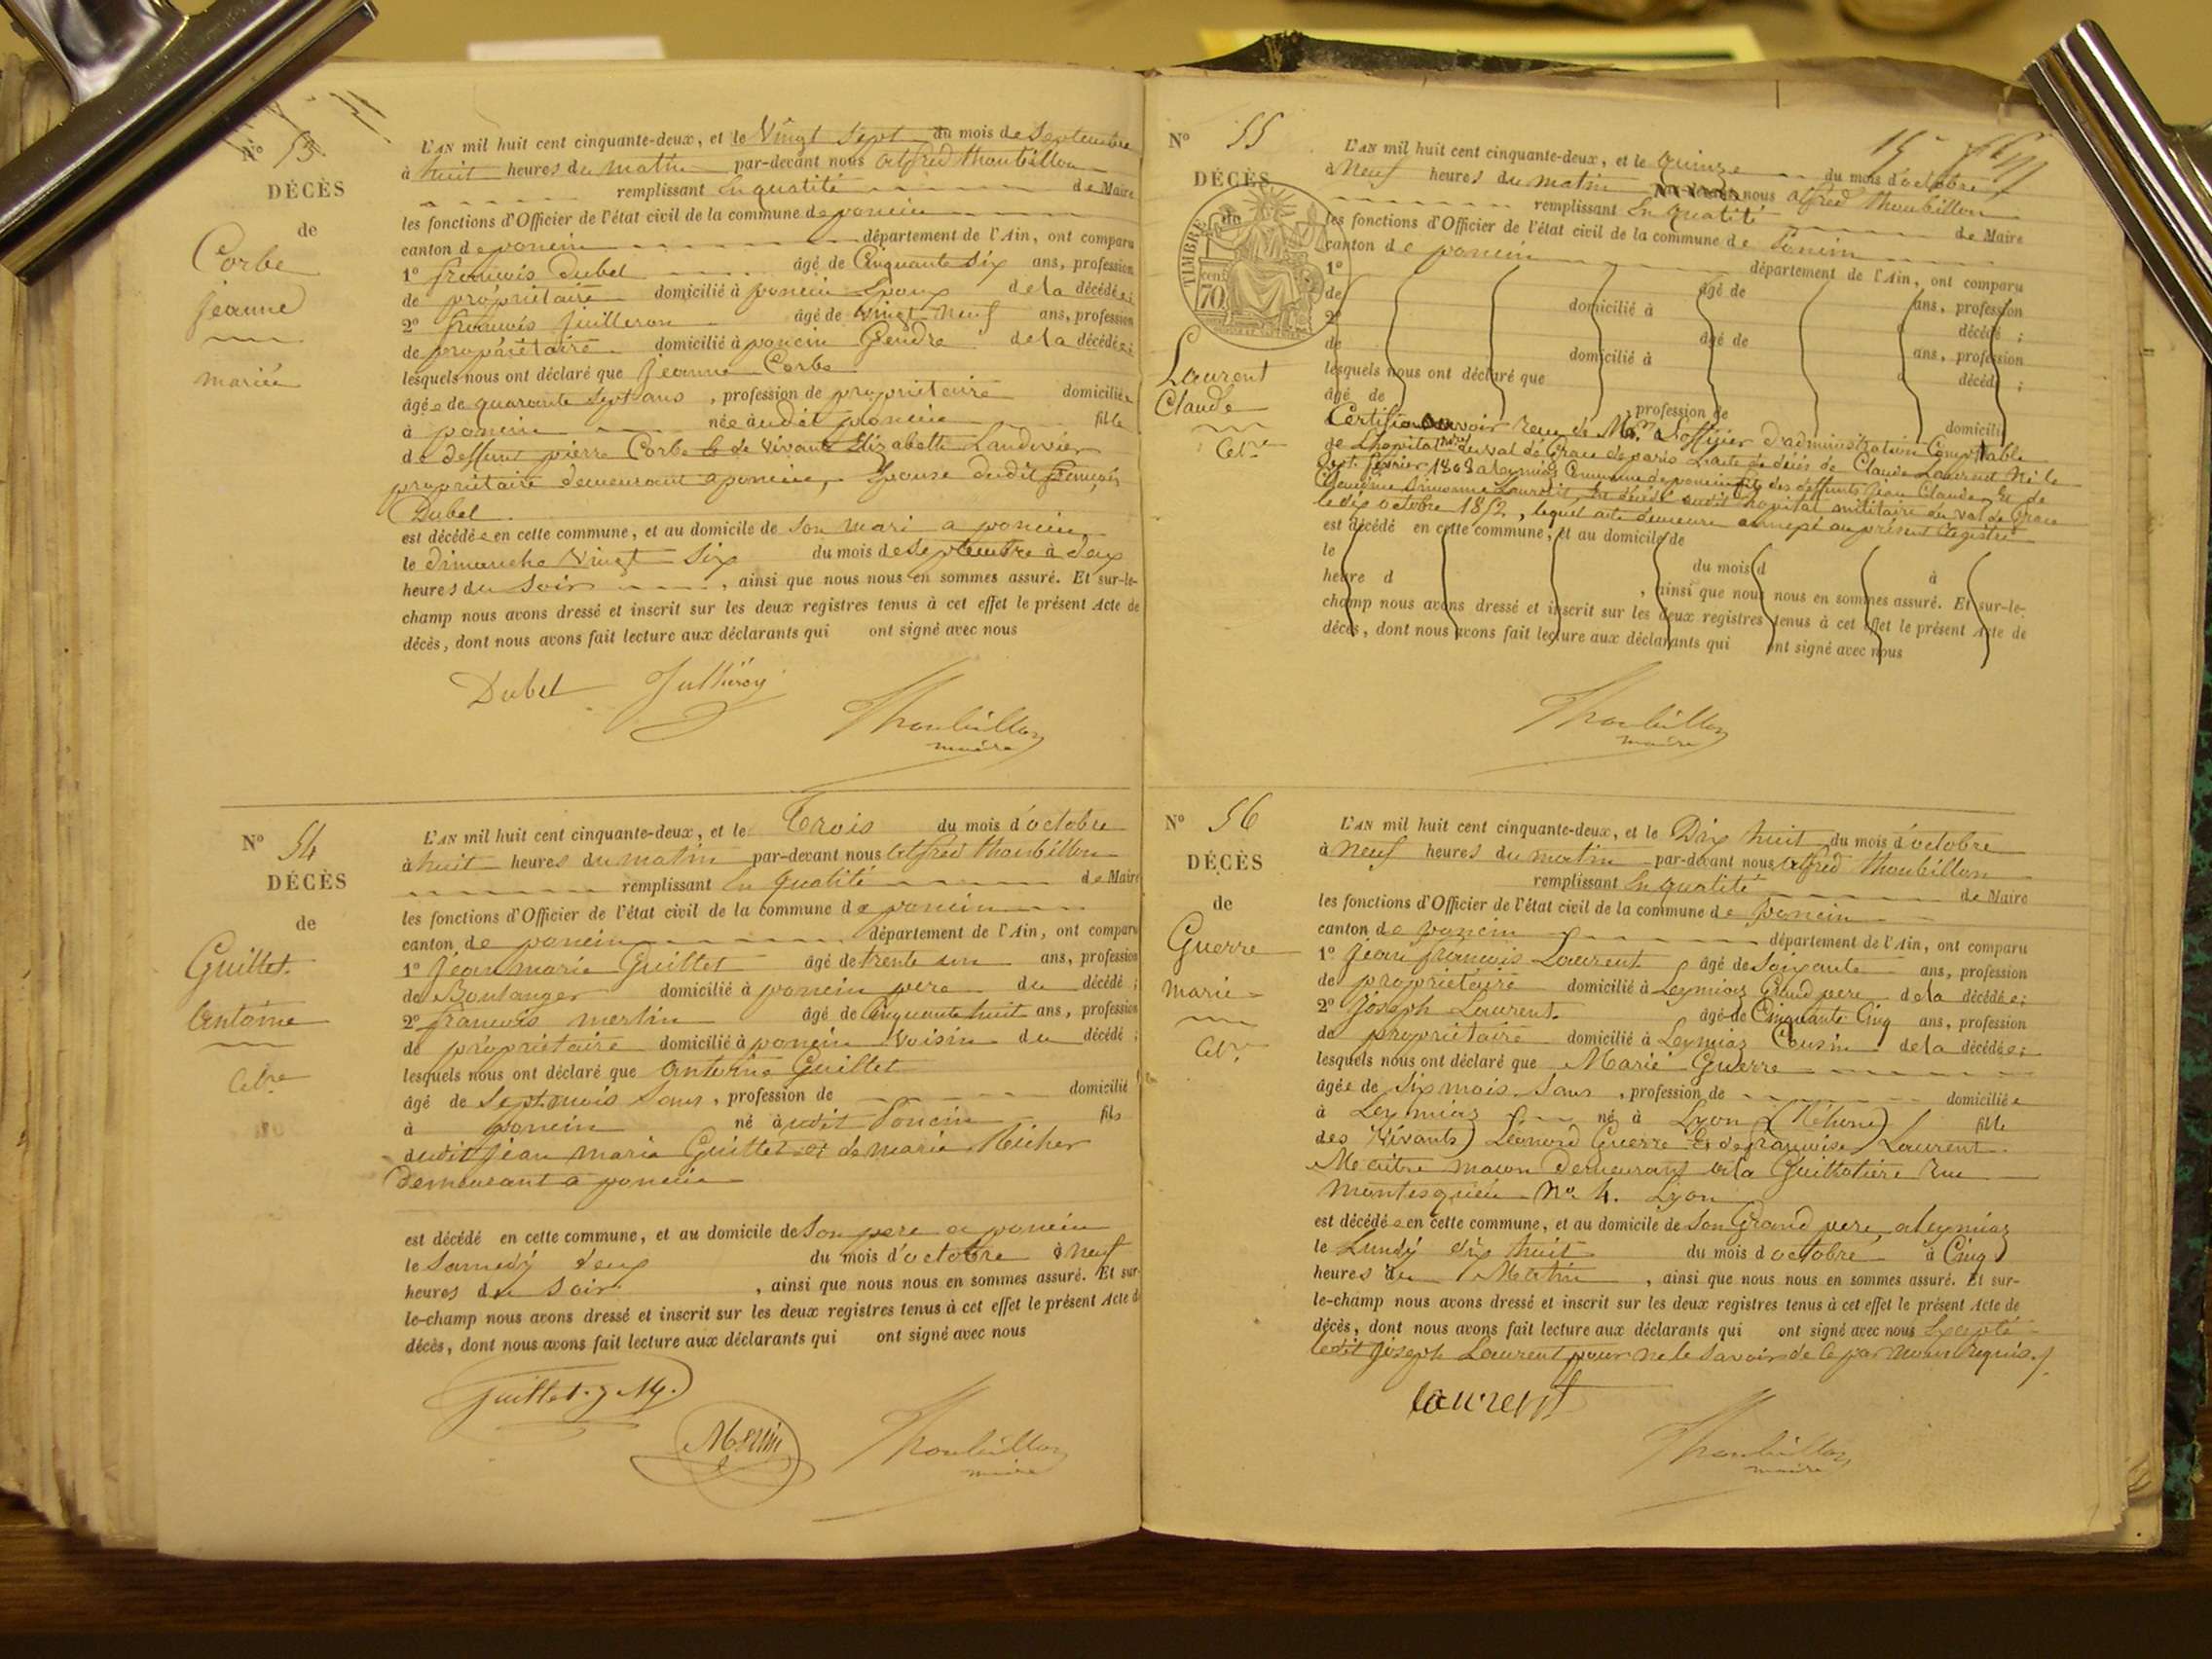 N° 53
DÉCÈS
de
Corbe
jeanne
mariée
L'AN mil huit cent cinquante-deux, et le Vingt Sept du mois de Septembre
à huit heures du matin par-devant nous alfred thoubillon
remplissant En qualité de Maire
les fonctions d'Officier de l'état civil de la commune de poncin
canton de poncin département de l'Ain, ont comparu
1° francois Dubel âgé de Cinquante Six ans, profession
de propriétaire domicilié à poncin Epoux de la décédée;
2° francois juilleron âgé de vingt neuf ans, profession
de propriétaire domicilié à poncin Gendre de la décédée;
lesquels nous ont déclaré que Jeanne Corbe
âgée de quarante Sept ans, profession de propriétaire domiciliée
à poncin née audit poncin fille
de deffunt pierre Corbe et de vivante Elizabeth Landivier
propriétaire demeurant a poncin, Epouse dudit francois
Dubel
est décédée en cette commune, et au domicile de Son mari a poncin
le dimanche vingt Six du mois de Septembre à deux
heures du Soir, ainsi que nous nous en sommes assuré. Et sur-le-
champ nous avons dressé et inscrit sur les deux registres tenus à cet effet le présent Acte de
décès, dont nous avons fait lecture aux déclarants qui ont signé avec nous
Dubel
Thoubillon
maire
N° 54
DÉCÈS
de
Guillet
Antoine
Cel.re
L'AN mil huit cent cinquante-deux, et le Trois du mois d'octobre
à huit heures du matin par-devant nous alfred thoubillon
remplissant En qualité de Maire
les fonctions d'Officier de l'état civil de la commune de poncin
canton de poncin département de l'Ain, ont comparu
1° Jean marie Guillet âgé de trente un ans, profession
de Boulanger domicilié à poncin pere du décédé;
2° francois merlin âgé de Cinquante huit ans, profession
de propriétaire domicilié à poncin Voisin du décédé;
lesquels nous ont déclaré que antoine Guillet
âgé de Sept mois Sans, profession de domicilié
à poncin né audit Poncin fils
dudit jean marie Guillet et de marie Richer
Demeurant a poncin
est décédé en cette commune, et au domicile de Son pere a poncin
le Samedy deux du mois d'octobre à Neuf
heures du Soir, ainsi que nous nous en sommes assuré. Et sur-
le-champ nous avons dressé et inscrit sur les deux registres tenus à cet effet le présent Acte de
décès, dont nous avons fait lecture aux déclarants qui ont signé avec nous
Guillet. J M.
Merlin
Thoubillon
maire
N° 55
DÉCÈS
de
TIMBRE
70
Laurent
Claude
Cel.re
L'AN mil huit cent cinquante-deux, et le quinze du mois d'octobre
à Neuf heures du matin nous alfred thoubillon
remplissant En qualité de Maire
les fonctions d'Officier de l'état civil de la commune de Poncin
canton de poncin département de l'Ain, ont comparu
1° âgé de ans, profession
de domicilié à décédé;
2° âgé de ans, profession
de domicilié à décédé;
lesquels nous ont déclaré que
âgé de profession de domicilié
Certifions avoir recu de Mr. L'officier d'administration Comptable
de L'hopital du val de Grace de paris L'acte de décès de Claude Laurent Né le
Sept février 1808 a Leymiaz Commune de poncin fils des deffunts jean Claude Et de
Laurent, Est décédé audit hopital militaire du val de Grace
le dix octobre 1852, lequel acte demeure annexé au présent Registre
est décédé en cette commune, et au domicile de
le du mois d à
heure d, ainsi que nous nous en sommes assuré. Et sur-le-
champ nous avons dressé et inscrit sur les deux registres tenus à cet effet le présent Acte de
décès, dont nous avons fait lecture aux déclarants qui ont signé avec nous
Thoubillon
maire
N° 56
DÉCÈS
de
Guerre
marie
Cel.re
L'AN mil huit cent cinquante-deux, et le Dix huit du mois d'octobre
à Neuf heures du matin par-devant nous alfred thoubillon
remplissant En qualité de Maire
les fonctions d'Officier de l'état civil de la commune de poncin
canton de poncin département de l'Ain, ont comparu
1° jean francois Laurent âgé de Soixante ans, profession
de propriétaire domicilié à Leymiaz Grand pere de la décédée;
2° Joseph Laurent âgé de Cinquante Cinq ans, profession
de propriétaire domicilié à Leymiaz Cousin de la décédée;
lesquels nous ont déclaré que Marie Guerre
âgée de Six mois Sans, profession de domiciliée
à Leymiaz né à Lyon (Rhône) fille
des vivants Léonard Guerre Et de francoise Laurent
Maitre macon demeurant a la Guillotiere Rue
Montesquieu No. 4. Lyon
est décédée en cette commune, et au domicile de Son Grand pere a Leymiaz
le Lundy dix huit du mois d'octobre à Cinq
heures du Matin, ainsi que nous nous en sommes assuré. Et sur-
le-champ nous avons dressé et inscrit sur les deux registres tenus à cet effet le présent Acte de
décès, dont nous avons fait lecture aux déclarants qui ont signé avec nous Excepté
ledit Joseph Laurent pour ne le Savoir de ce par nous Requis./.
laurent
Thoubillon
maire